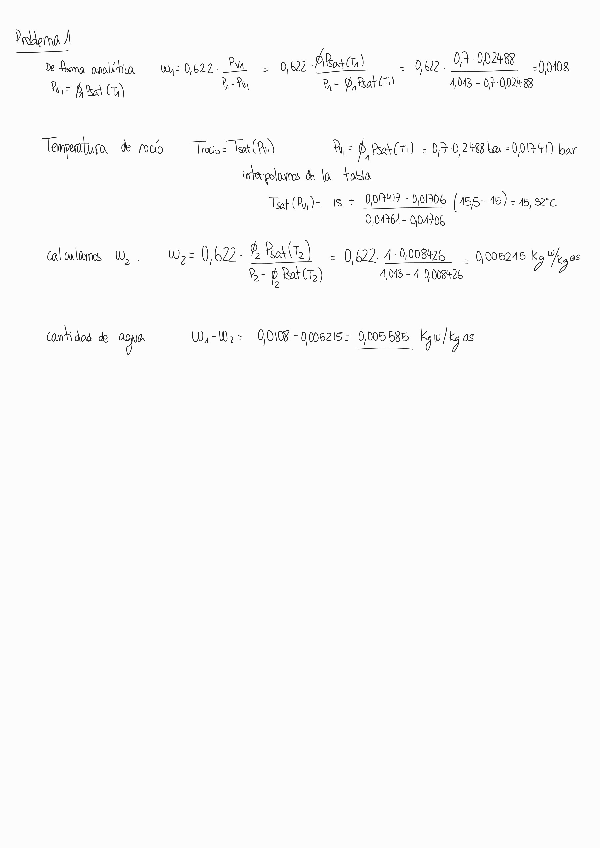 Problema 1
De forma analítica w₁ = 0,622 · Pv₁ / (P₁ - Pv₁) = 0,622 · ϕ₁Psat(T₁) / (P₁ - ϕ₁Psat(T₁)) = 0,622 · 0,7 · 0,02488 / (1,013 - 0,7 · 0,02488) = 0,0108
Pv₁ = ϕ₁Psat(T₁)
Temperatura de rocío Trocio = Tsat(Pv₁) Pv₁ = ϕ₁ Psat(T₁) = 0,7 · 0,2488 bar = 0,017417 bar
interpolamos de la tabla
Tsat(Pv₁) - 15 = (0,017417 - 0,01706) / (0,01761 - 0,01706) (15,5 - 15) = 15,32°C
calculamos w₂ : w₂ = 0,622 · ϕ₂ Psat(T₂) / (P₂ - ϕ₂ Psat(T₂)) = 0,622 · 1 · 0,008426 / (1,013 - 1 · 0,008426) = 0,005215 Kg w/kg as
cantidad de agua w₁ - w₂ = 0,0108 - 0,005215 = 0,005585 Kg w/kg as